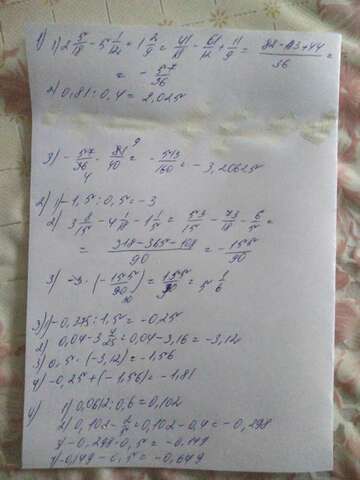 1) 1) 2 5/18 - 5 1/12 = 1 2/9 = 41/18 - 61/12 + 11/9 = 82-183+44/36 =
= - 57/36
2) 0,81 : 0,4 = 2,025
3) - 57/36 · 81/40 = - 513/160 = - 3,20625
2) 1) - 1,5 : 0,5 = -3
2) 3 8/15 - 4 1/18 - 1 1/5 = 53/15 - 73/18 - 6/5 =
= 318-365-108/90 = - 155/90
3) -3 · (- 155/90) = 155/30 = 5 1/6
3) 1) -0,375 : 1,5 = -0,25
2) 0,04 - 3 4/25 = 0,04 - 3,16 = -3,12
3) 0,5 · (-3,12) = -1,56
4) -0,25 + (-1,56) = -1,81
4) 1) 0,0612 : 0,6 = 0,102
2) 0,102 - 2/5 = 0,102 - 0,4 = -0,298
3) -0,298 · 0,5 = -0,149
4) -0,149 - 0,5 = -0,649